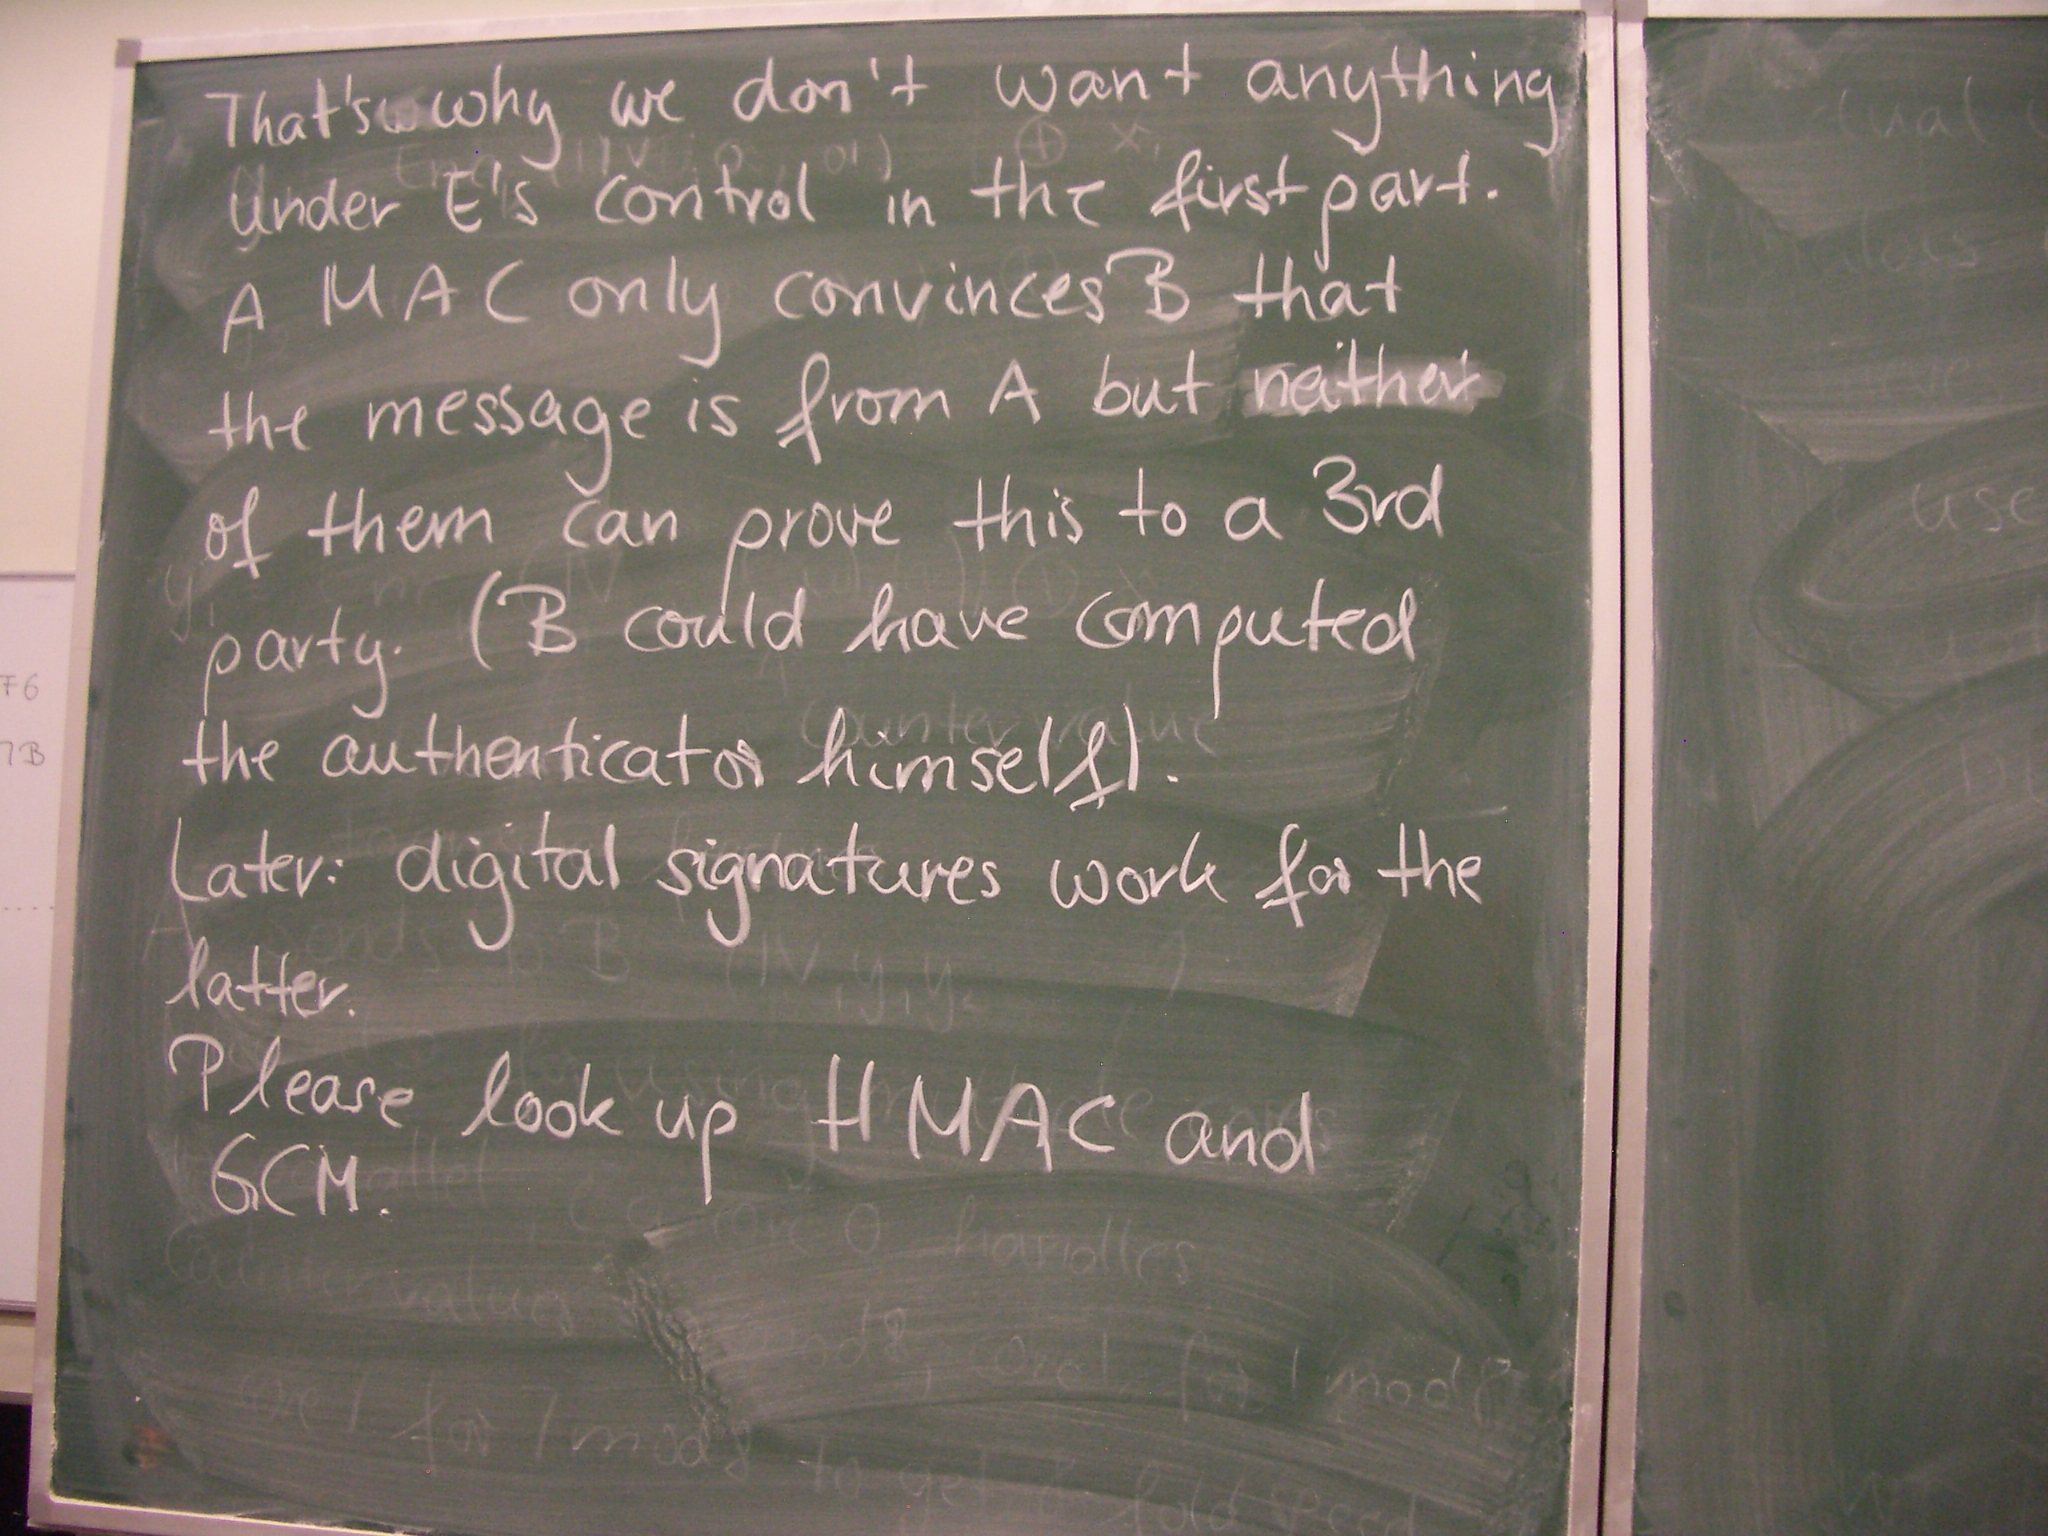 That's why we don't want anything
under E's control in the first part.
A MAC only convinces B that
the message is from A but neither
of them can prove this to a 3rd
party. (B could have computed
the authenticator himself).
Later: digital signatures work for the
latter.
Please look up HMAC and
GCM.